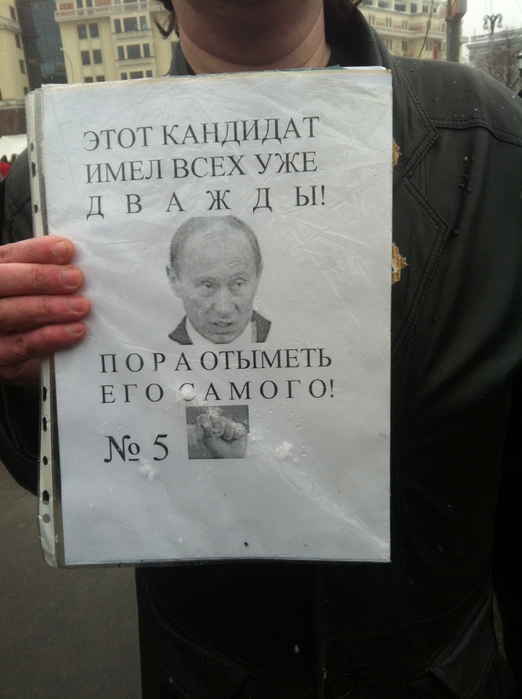 ЭТОТ КАНДИДАТ
ИМЕЛ ВСЕХ УЖЕ
Д В А Ж Д Ы!
П О Р А ОТЫМЕТЬ
Е Г О С А М О Г О!
№ 5